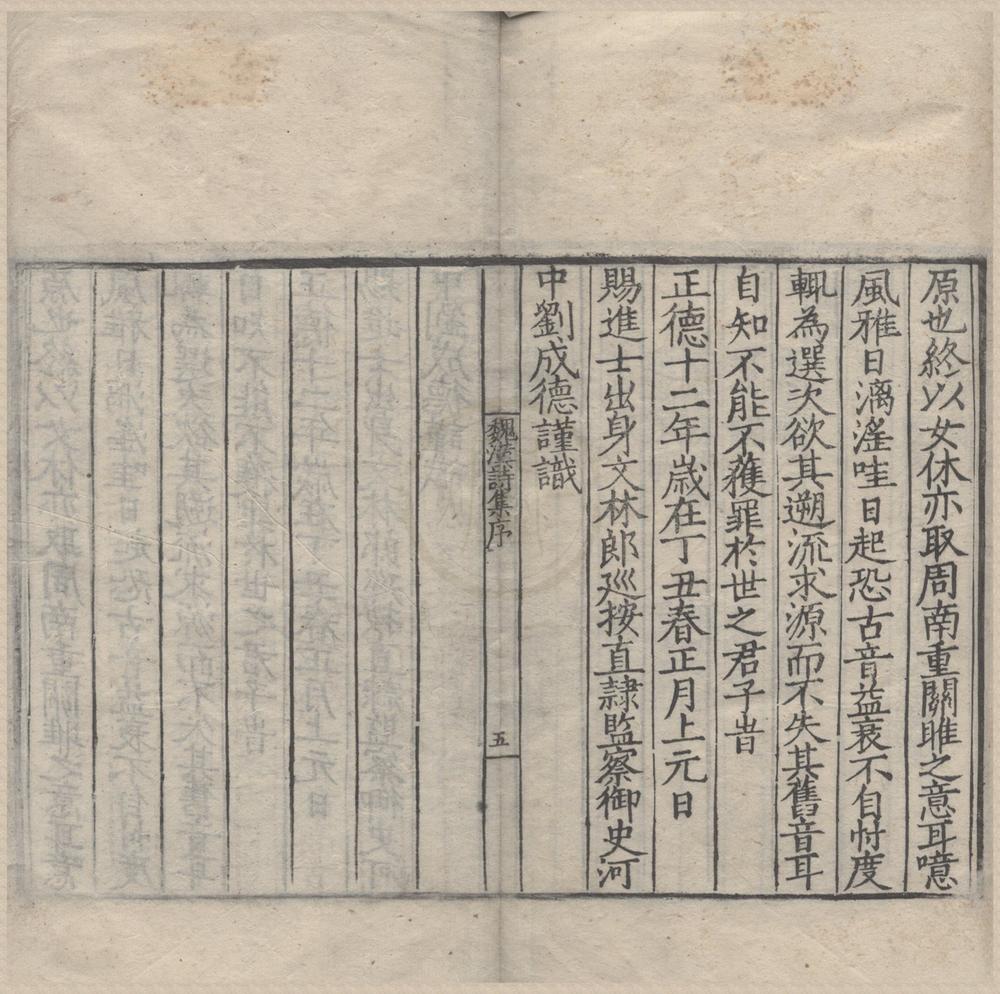 原也終以女休亦取周南重關雎之意耳噫
風雅日漓滛哇日起恐古音益衰不自忖度
輒為選次欲其遡流求源而不失其舊音耳
自知不能不獲罪於世之君子旹
正德十二年歲在丁丑春正月上元日
賜進士出身文林郎廵按直隷監察御史河
中劉成德謹識
魏漢詩集序
五